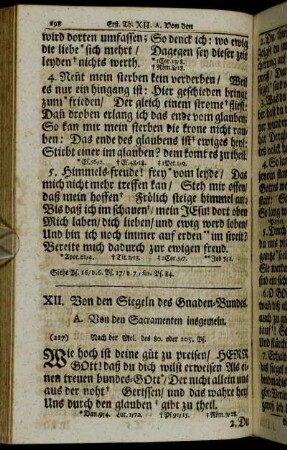 298 Erst. Th. XII. A. Von den
wird dorten umfassen; So denck ich: wo ewig
die liebe * sich mehrt / Dagegen sey dieser zeit
leyden † nichts werth.
4. Nent mein sterben kein verderben / Weil
es nur ein hingang ist: Hier geschieden bringt
zum * frieden / Der gleich einem strome † fließt.
Dañ droben erlang ich das ende vom glauben:
So kan mir mein sterben die krone nicht rau-
ben: Das ende des glaubens ist ‡ ewiges heyl:
Stirbt einer im glauben? dem komt es zu theil.
5. Himmels-freude! frey * vom leyde / Das
mich nicht mehr treffen kan / Steh mir offen/
daß mein hoffen † Frölich steige himmel an:
Bis daß ich im schauen ‡ mein JEsus dort oben
Mich laben / dich lieben / und ewig werd loben/
Und bin ich noch immer auf erden ** im streit?
Bereite mich dadurch zur ewigen freud.
Siehe Ps. 16/ v. 6. Ps. 17/ v. 7. Ps. 84.
XII. Von den Siegeln des Gnaden-Bundes.
A. Von den Sacramenten insgemein.
(217) Nach der Mel. des 80. oder 105. Ps.
Wie hoch ist deine güt zu preisen / HERR
GOtt! daß du dich wilst erweisen Als ei-
nen treuen bundes-GOtt * / Der nicht allein uns
aus der noht † Gerissen / und das wahre heyl
Uns durch den glauben ‡ gibt zu theil.
2. Du